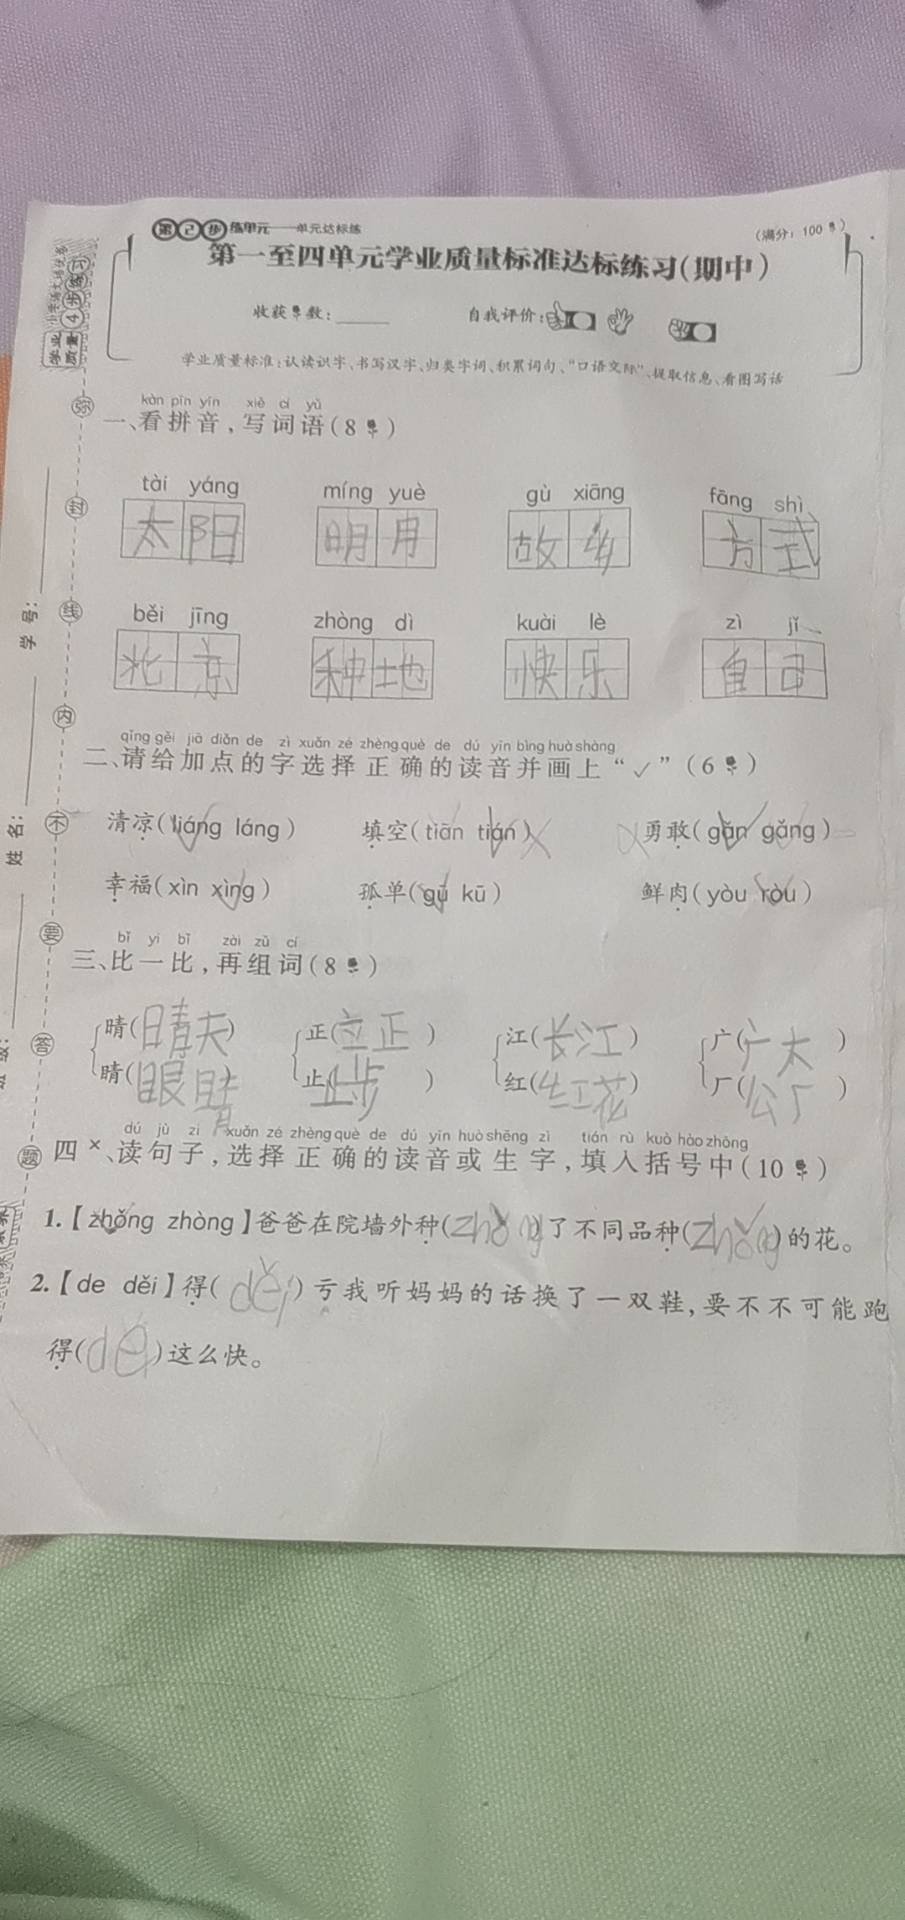 第2步 练单元——单元达标练
(满分：100)
第一至四单元学业质量标准达标练习(期中)
收获数：______ 自我评价：
学业质量标准：认读识字、书写汉字、归类字词、积累词句、“口语交际”、提取信息、看图写话
kàn pīn yīn xiě cí yǔ
一、看拼音，写词语(8)
tài yáng míng yuè gù xiāng fāng shì
太阳 明月 故乡 方式
běi jīng zhòng dì kuài lè zì jǐ
北京 种地 快乐 自己
qǐng gěi jiā diǎn de zì xuǎn zé zhèng què de dú yīn bìng huà shàng
二、请给加点的字选择正确的读音并画上“✓”(6)
清凉(liáng láng) 填空(tiān tián) 勇敢(gǎn gǎng)
幸福(xìn xìng) 孤单(gū kū) 鲜肉(yòu ròu)
bǐ yi bǐ zài zǔ cí
三、比一比，再组词(8)
晴(晴天) 正(立正) 江(长江) 广(广大)
睛(眼睛) 止(止步) 红(红花) 厂(公厂)
dú jù zi xuǎn zé zhèng què de dú yīn huò shēng zì tián rù kuò hào zhōng
四×、读句子，选择正确的读音或生字，填入括号中(10)
1.【zhǒng zhòng】爸爸在院墙外种(zhǒng)了不同品种(zhǒng)的花。
2.【de děi】得(děi)亏我听妈妈的话换了一双鞋，要不不可能跑
得(dě)这么快。
学业质量
小学语文培优卷
4步练习
弥 封 线 内 不 要 答 题
学号：
姓名：